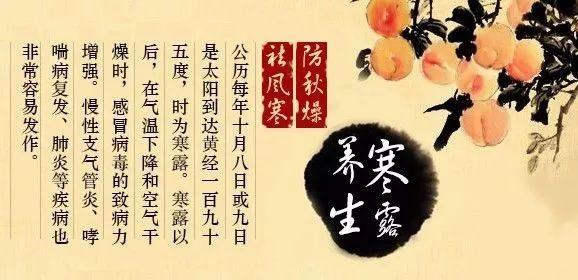 防秋燥
祛风寒
寒露
养生
公历每年十月八日或九日
是太阳到达黄经一百九十
五度，时为寒露。寒露以
后，在气温下降和空气干
燥时，感冒病毒的致病力
增强。慢性支气管炎、哮
喘病复发、肺炎等疾病也
非常容易发作。